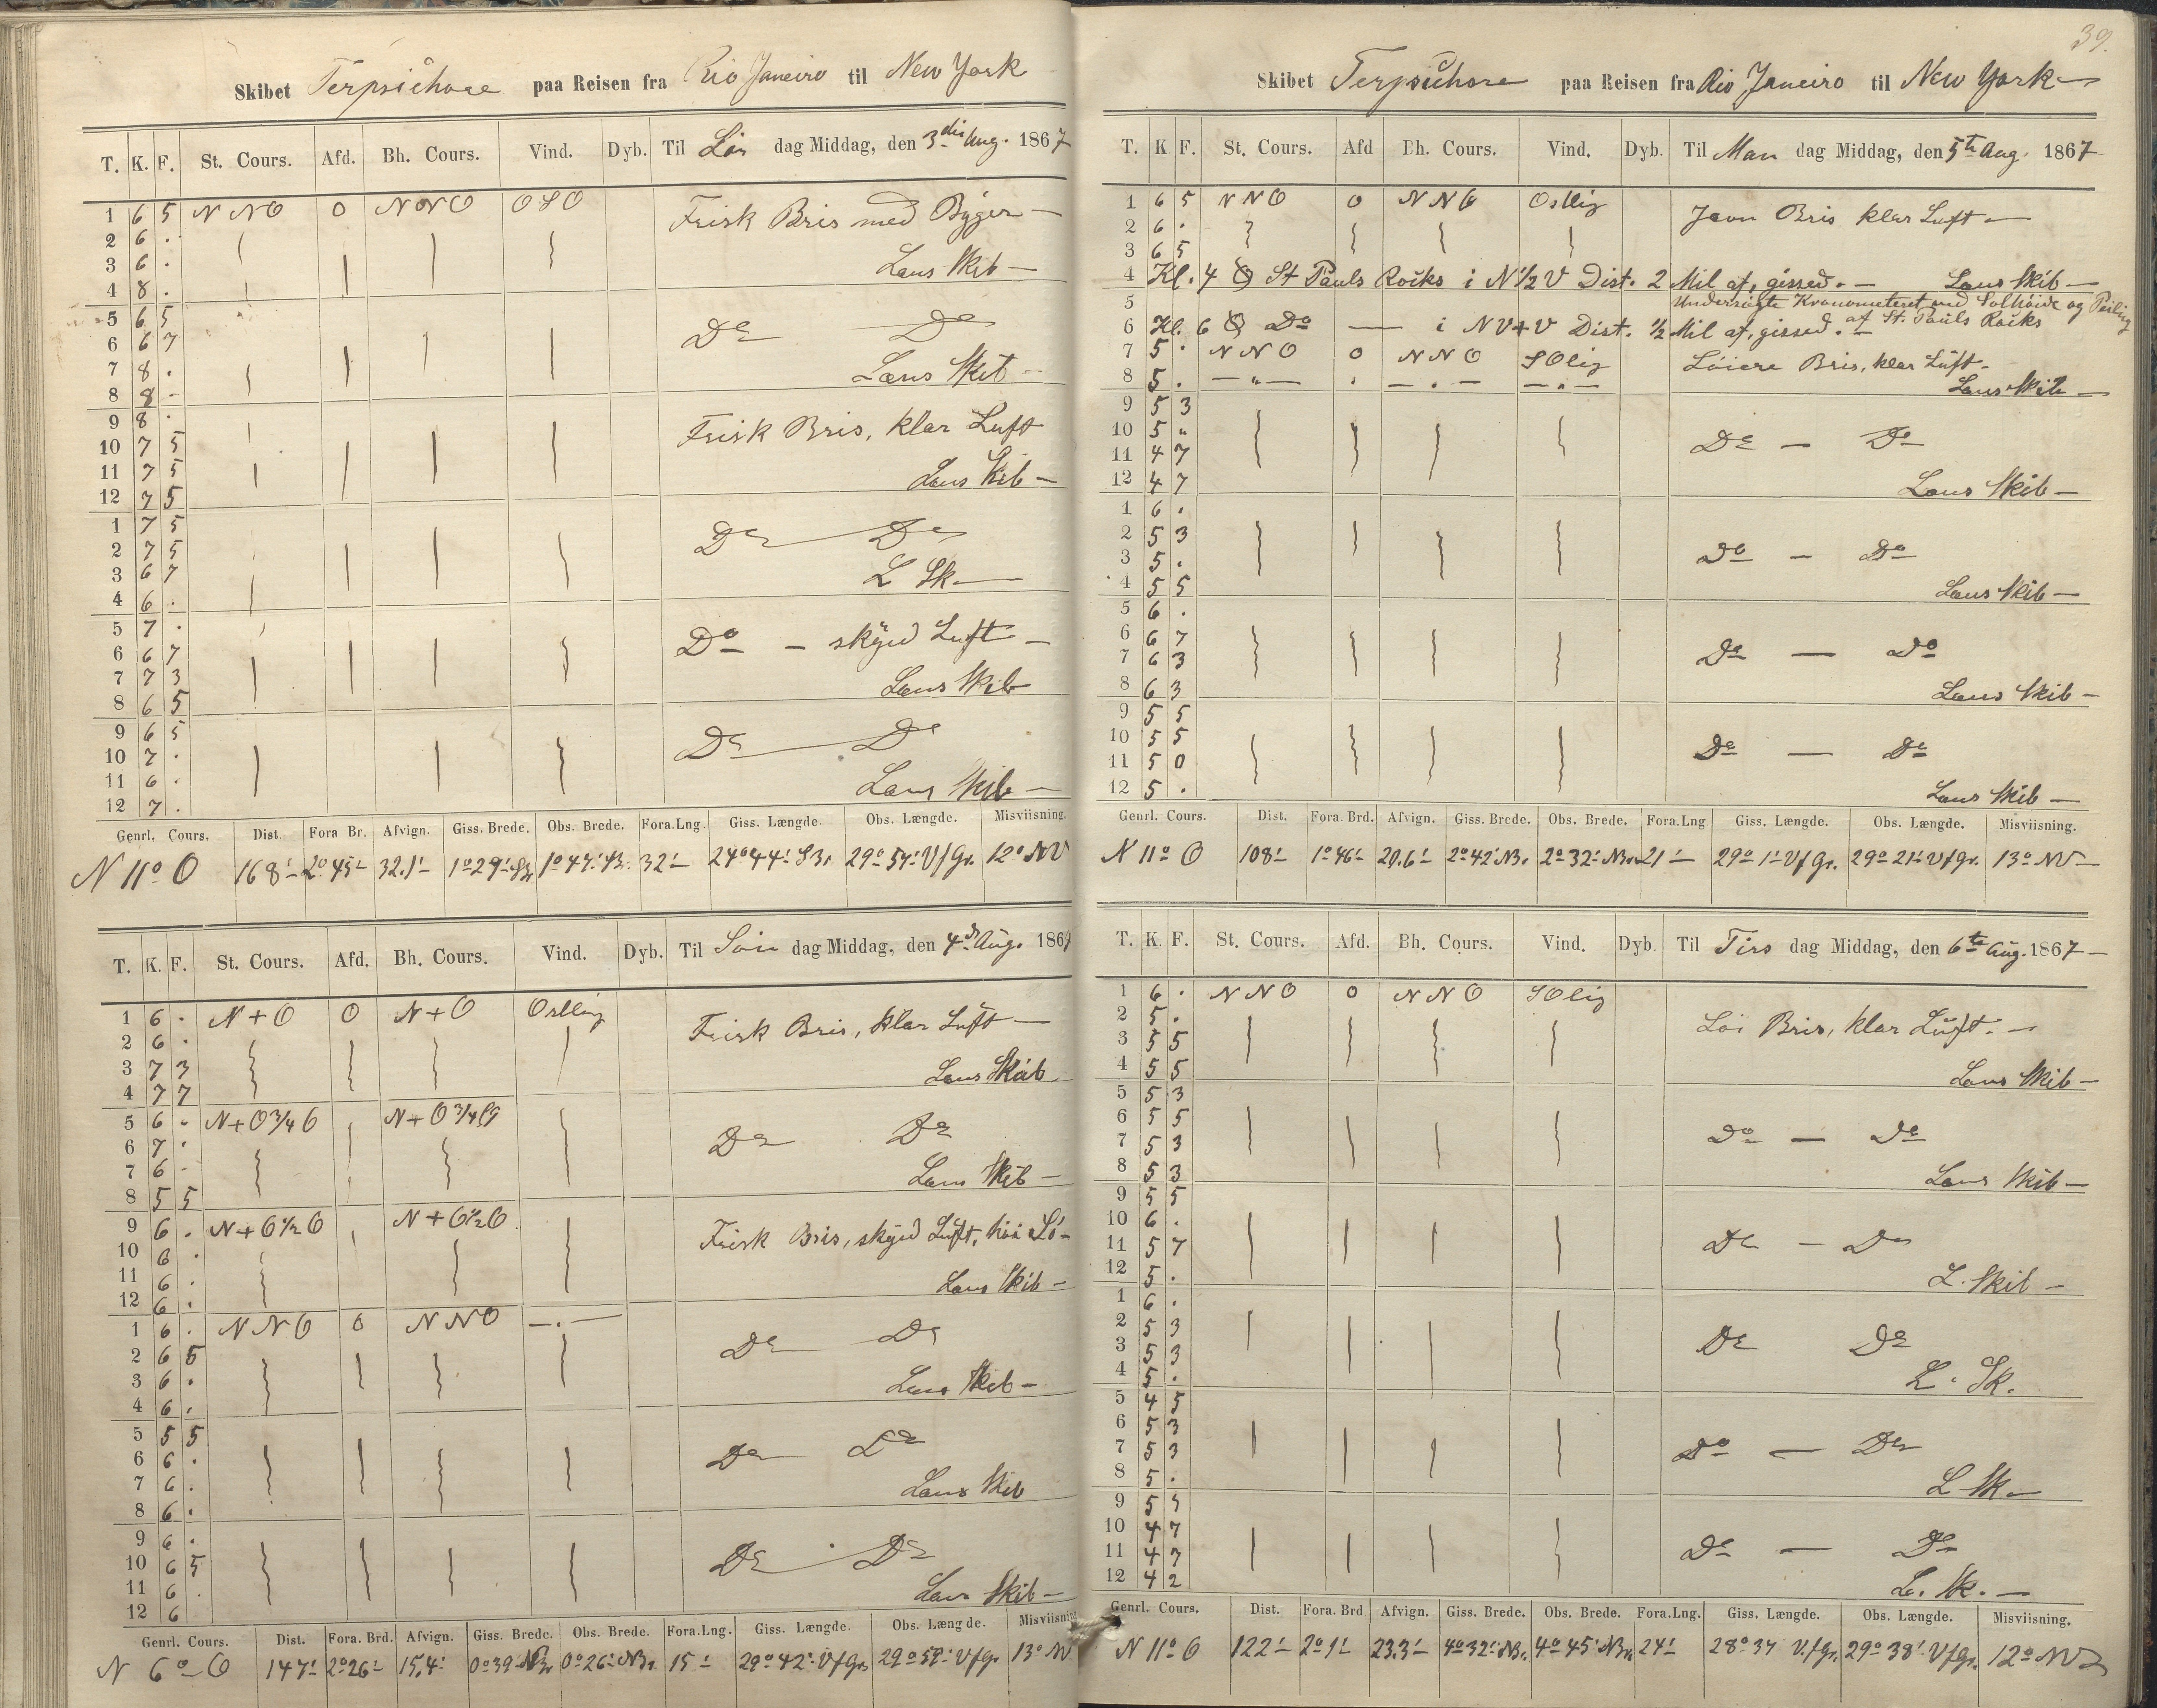 Skibet Terpsichore paa Reisen fra Rio Janeiro til New York
T. K. F. St. Cours. Afd. Bh. Cours. Vind. Dyb. Til Lör dag Middag, den 3die Aug. 1867
1 6 5 NNO 0 NNO OSO Frisk Bris med Byger —
2 6 .
3 6 . Læns Skib —
4 8 .
5 6 5
6 6 7 Do Do
7 8 . Læns Skib —
8 8 -
9 8 .
10 7 5 Frisk Bris, klar Luft
11 7 5
12 7 5 Læns Skib —
1 7 5
2 7 5 Do Do
3 6 7 L Sk —
4 6 .
5 7 .
6 6 7 Do — skyed Luft —
7 7 3
8 6 5 Læns Skib
9 6 5
10 7 . Do Do
11 6 .
12 7 . Læns Skib —
Genrl. Cours. Dist. Fora Br. Afvign. Giss. Brede. Obs. Brede. Fora.Lng. Giss. Længde. Obs. Længde. Misviisning.
N 11° O 168' 2° 45' 32.1' 1° 29' 1° 47' 32' 29° 54' V f Gr. 12° NV
T. K. F. St. Cours. Afd. Bh. Cours. Vind. Dyb. Til Sön dag Middag, den 4de Aug. 1867
1 6 . N+O 0 N+O Ostlig Frisk Bris, klar Luft —
2 6 .
3 7 3 Læns Skib
4 7 7
5 6 . N+O 3/4 O N+O 3/4 O
6 7 . Do Do
7 6 - Læns Skib —
8 5 5
9 6 . N+O 1/2 O N+O 1/2 O Frisk Bris, skyed Luft, höi Sö —
10 6 .
11 6 . Læns Skib —
12 6 .
1 6 . NNO 0 NNO — . —
2 6 5 Do Do
3 6 . Læns Skib —
4 6 .
5 5 5
6 6 . Do Do
7 6 . Læns Skib
8 6 .
9 6 .
10 6 5 Do Do
11 6 . Læns Skib —
12 6
Genrl. Cours. Dist. Fora. Brd. Afvign. Giss. Brede. Obs. Brede. Fora.Lng. Giss. Længde. Obs. Længde. Misviisning
N 6° O 147' 2° 26' 15,4' 0° 39' NBr 0° 26' NBr 15' 29° 42' V f Gr 29° 59' V f Gr 13° NV
39.
Skibet Terpsichore paa Reisen fra Rio Janeiro til New York —
T. K F. St. Cours. Afd Bh. Cours. Vind. Dyb. Til Man dag Middag, den 5te Aug. 1867
1 6 5 NNO 0 NNO Ostlig Jevn Bris klar Luft —
2 6 .
3 6 5
4 Kl. 4 St Pauls Rocks i N 1/2 V Dist. 2 Mil af, gissed. — Læns Skib —
5 Undersögte Kronometeret med Solhöide og Peiling
af St. Pauls Rocks
6 Kl. 6 Do — i NV+V Dist. 1/2 Mil af, gissed. —
7 5 . NNO 0 NNO SOlig Löiere Bris, klar Luft —
8 5 . — " — . — . — — . — Læns Skib —
9 5 3
10 5 " Do — Do
11 4 7
12 4 7 Læns Skib —
1 6 .
2 5 3 Do — Do
3 5 .
4 5 5 Læns Skib —
5 6 .
6 6 7 Do — Do
7 6 3
8 6 3 Læns Skib —
9 5 5
10 5 5 Do — Do
11 5 0
12 5 . Læns Skib —
Genrl. Cours. Dist. Fora. Brd. Afvign. Giss. Brede. Obs. Brede. Fora.Lng Giss. Længde. Obs. Længde. Misviisning.
N 11° O 108' 1° 46' 20.6' 2° 42' NBr. 2° 32' NBr. 21' 29° 1' V f Gr. 29° 21' V f Gr. 13° NV —
T. K. F. St. Cours. Afd. Bh. Cours. Vind. Dyb. Til Tirs dag Middag, den 6te Aug. 1867 —
1 6 . NNO 0 NNO SOlig
2 5 . Löi Bris, klar Luft. —
3 5 5
4 5 5 Læns Skib —
5 5 3
6 5 5 Do — Do
7 5 3
8 5 3 Læns Skib —
9 5 5
10 6 .
11 5 7 Do — Do
12 5 . L. Skib —
1 6 .
2 5 3 Do Do
3 5 3
4 5 . L. Sk.
5 4 5
6 5 3 Do — Do
7 5 3
8 5 . L Sk —
9 5 5
10 4 7
11 4 7 Do — Do
12 4 2 L. Sk. —
Genrl. Cours. Dist. Fora. Brd Afvign. Giss. Brede. Obs. Brede. Fora.Lng. Giss. Længde. Obs. Længde. Misviisning.
N 11° O 122' 2° 1' 23.3' 4° 32' NBr. 4° 45' NBr 24' 28° 37 V. f Gr. 29° 38' V f Gr. 12° NV